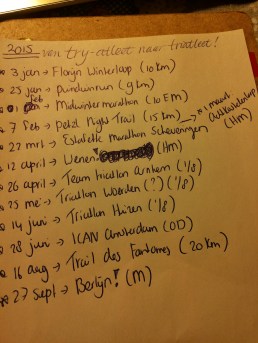 2015 van try-atleet naar triatleet!
3 jan → Florijn Winterloop (10km)
25 jan → Pundurun (9km)
1 feb → Midwintermarathon (10EM)
7 feb → Petzl Night Trail (15km)
* 1 maart
(HM)
22 mrt → Estafette marathon Scheveningen
12 april → Wenen (HM)
26 april → Team triatlon Arnhem (1/8)
25 mei → Triatlon Woerden (?) (1/8)
14 juni → Triatlon Huizen (1/8)
28 juni → ICAN Amsterdam (OD)
16 aug → Trail des Fantomes (20km)
27 sept → Berlijn! (M)